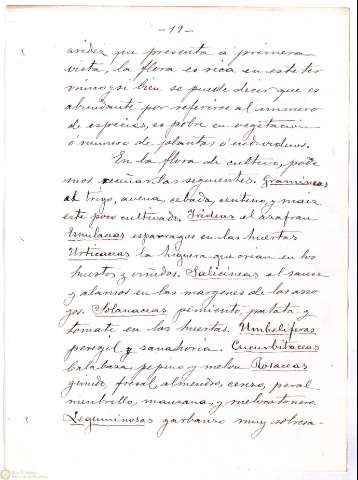 -19-
aridez que presenta á primera
vista, la flora es rica en este ter
mino, si bien se puede decir que es
abundante por referirse al numero
de especies, es pobre en vegetación
ó numero de plantas ó individuos.
En la flora de cultivo, pode
mos reseñar las siguientes. Gramineas
el trigo, avena, cebada, centeno, y maiz
este poco cultivado. Irideas el azafran
esparragos en las huertas
Urticaceas la higuera que crian en los
huertos y viñedos. Salicineas el sauce
y alamos en las margenes de los arro
yos. Solanaceas pimiento, patata, y
tomate en las huertas. Umbeliferas
peregil y zanahoria. Cucurbitaceas
calabaza, pepino y melon Rosaceas
guindo, fresal, almendro, cerezo, peral
membrillo, manzana, y melocotonero.
Leguminosas garbanzo muy sobresa-